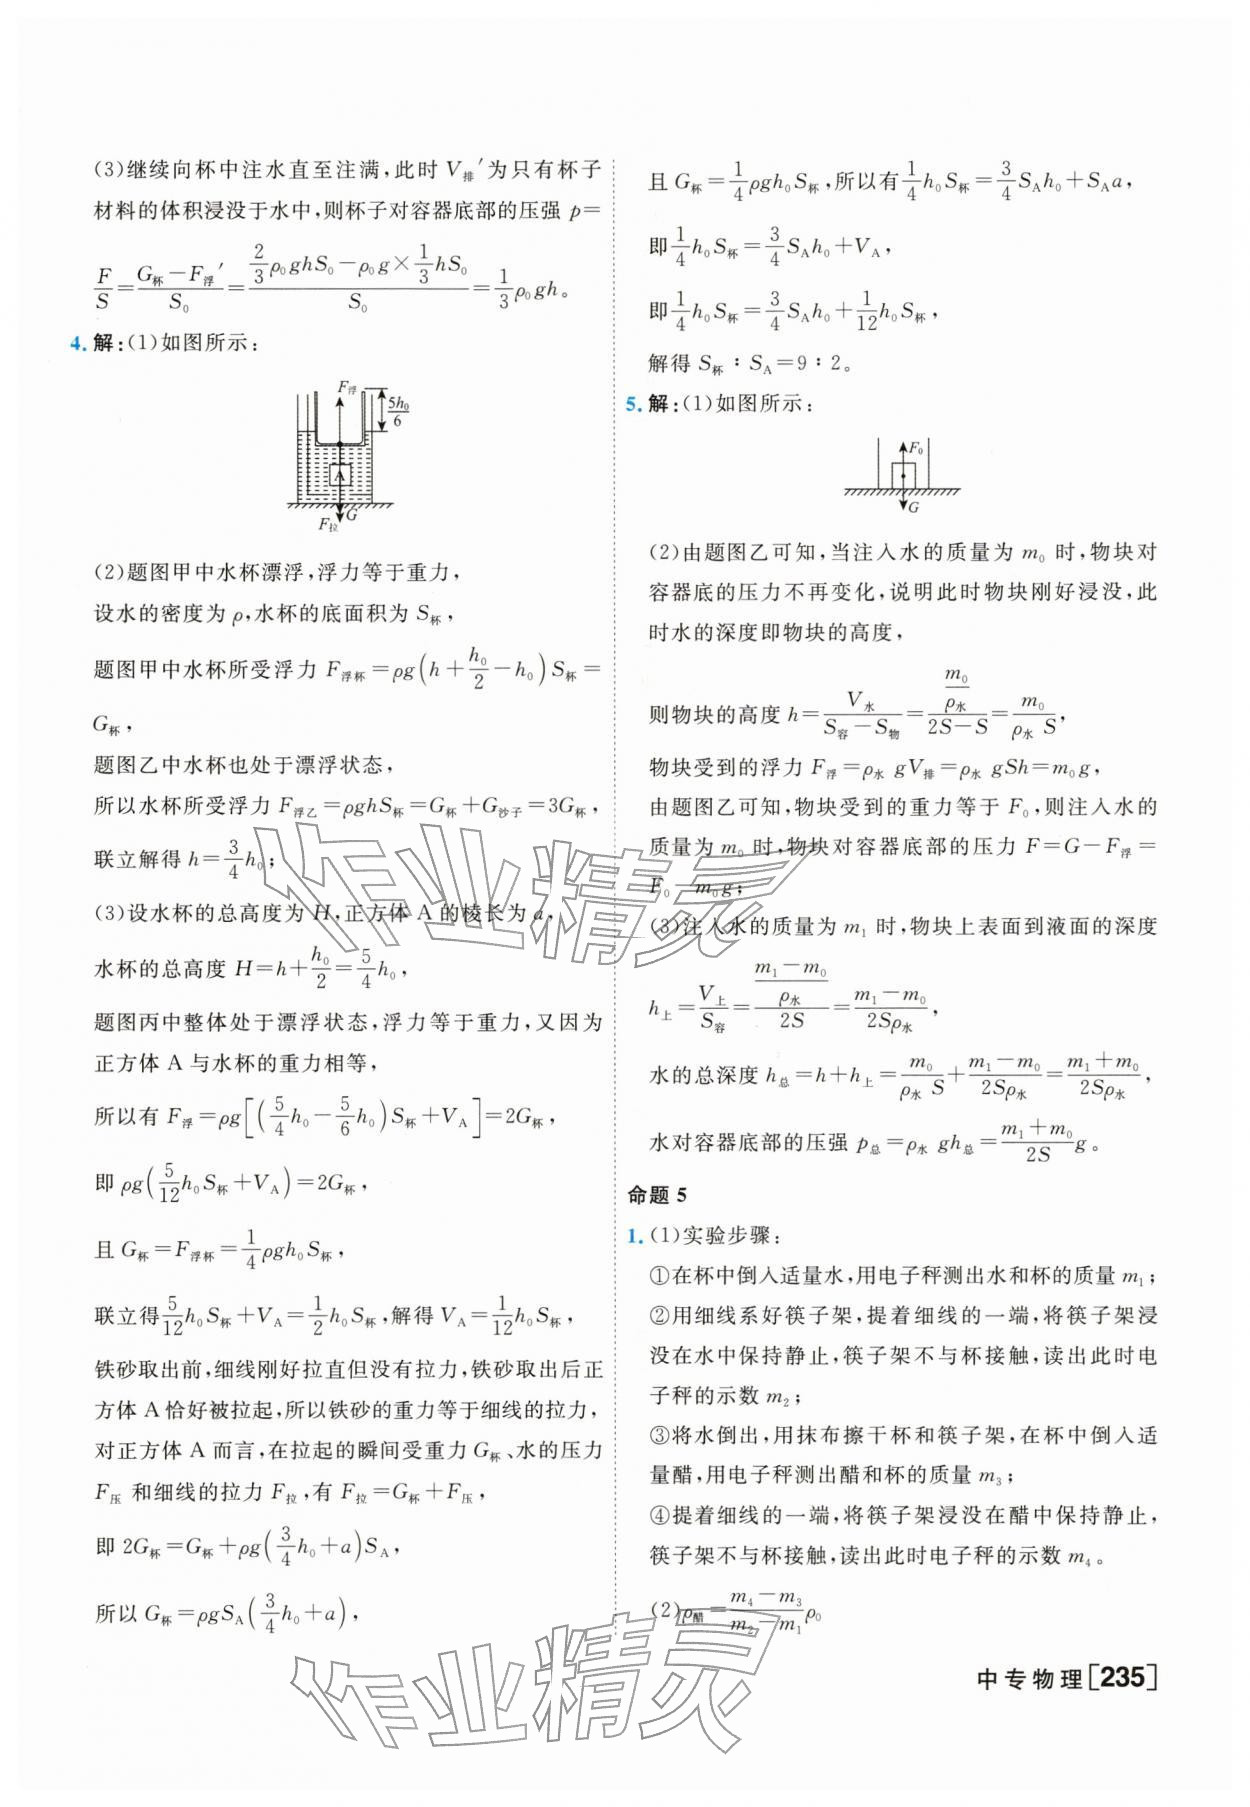 (3)继续向杯中注水直至注满,此时 V排′为只有杯子
材料的体积浸没于水中,则杯子对容器底部的压强 p=
F/S=(G杯-F浮′)/S₀=(2/3ρ₀ghS₀-ρ₀g×1/3hS₀)/S₀=1/3ρ₀gh。
4. 解:(1)如图所示:
F浮
5h₀/6
A
F拉 G
(2)题图甲中水杯漂浮,浮力等于重力,
设水的密度为 ρ,水杯的底面积为 S杯,
题图甲中水杯所受浮力 F浮杯=ρg(h+h₀/2-h₀)S杯=
G杯,
题图乙中水杯也处于漂浮状态,
所以水杯所受浮力 F浮乙=ρghS杯=G杯+G沙子=3G杯,
联立解得 h=3/4h₀;
(3)设水杯的总高度为 H,正方体 A 的棱长为 a,
水杯的总高度 H=h+h₀/2=5/4h₀,
题图丙中整体处于漂浮状态,浮力等于重力,又因为
正方体 A 与水杯的重力相等,
所以有 F浮=ρg[(5/4h₀-5/6h₀)S杯+V_A]=2G杯,
即 ρg(5/12h₀S杯+V_A)=2G杯,
且 G杯=F浮杯=1/4ρgh₀S杯,
联立得5/12h₀S杯+V_A=1/2h₀S杯,解得 V_A=1/12h₀S杯,
铁砂取出前,细线刚好拉直但没有拉力,铁砂取出后正
方体 A 恰好被拉起,所以铁砂的重力等于细线的拉力,
对正方体 A 而言,在拉起的瞬间受重力 G杯、水的压力
F压 和细线的拉力 F拉,有 F拉=G杯+F压,
即 2G杯=G杯+ρg(3/4h₀+a)S_A,
所以 G杯=ρgS_A(3/4h₀+a),
且 G杯=1/4ρgh₀S杯,所以有1/4h₀S杯=3/4S_Ah₀+S_Aa,
即1/4h₀S杯=3/4S_Ah₀+V_A,
即1/4h₀S杯=3/4S_Ah₀+1/12h₀S杯,
解得 S杯:S_A=9:2。
5. 解:(1)如图所示:
F₀
G
(2)由题图乙可知,当注入水的质量为 m₀ 时,物块对
容器底的压力不再变化,说明此时物块刚好浸没,此
时水的深度即物块的高度,
则物块的高度 h=V水/(S容-S物)=(m₀/ρ水)/(2S-S)=m₀/(ρ水 S),
物块受到的浮力 F浮=ρ水 gV排=ρ水 gSh=m₀g,
由题图乙可知,物块受到的重力等于 F₀,则注入水的
质量为 m₀ 时,物块对容器底部的压力 F=G-F浮=
F₀-m₀g;
(3)注入水的质量为 m₁ 时,物块上表面到液面的深度
h上=V上/S容=((m₁-m₀)/ρ水)/2S=(m₁-m₀)/2Sρ水,
水的总深度 h总=h+h上=m₀/(ρ水 S)+(m₁-m₀)/2Sρ水=(m₁+m₀)/2Sρ水,
水对容器底部的压强 p总=ρ水 gh总=(m₁+m₀)/2S g。
命题 5
1. (1)实验步骤:
①在杯中倒入适量水,用电子秤测出水和杯的质量 m₁;
②用细线系好筷子架,提着细线的一端,将筷子架浸
没在水中保持静止,筷子架不与杯接触,读出此时电
子秤的示数 m₂;
③将水倒出,用抹布擦干杯和筷子架,在杯中倒入适
量醋,用电子秤测出醋和杯的质量 m₃;
④提着细线的一端,将筷子架浸没在醋中保持静止,
筷子架不与杯接触,读出此时电子秤的示数 m₄。
(2)ρ醋=(m₄-m₃)/(m₂-m₁)ρ₀
中专物理[235]
作业精灵
作业精灵